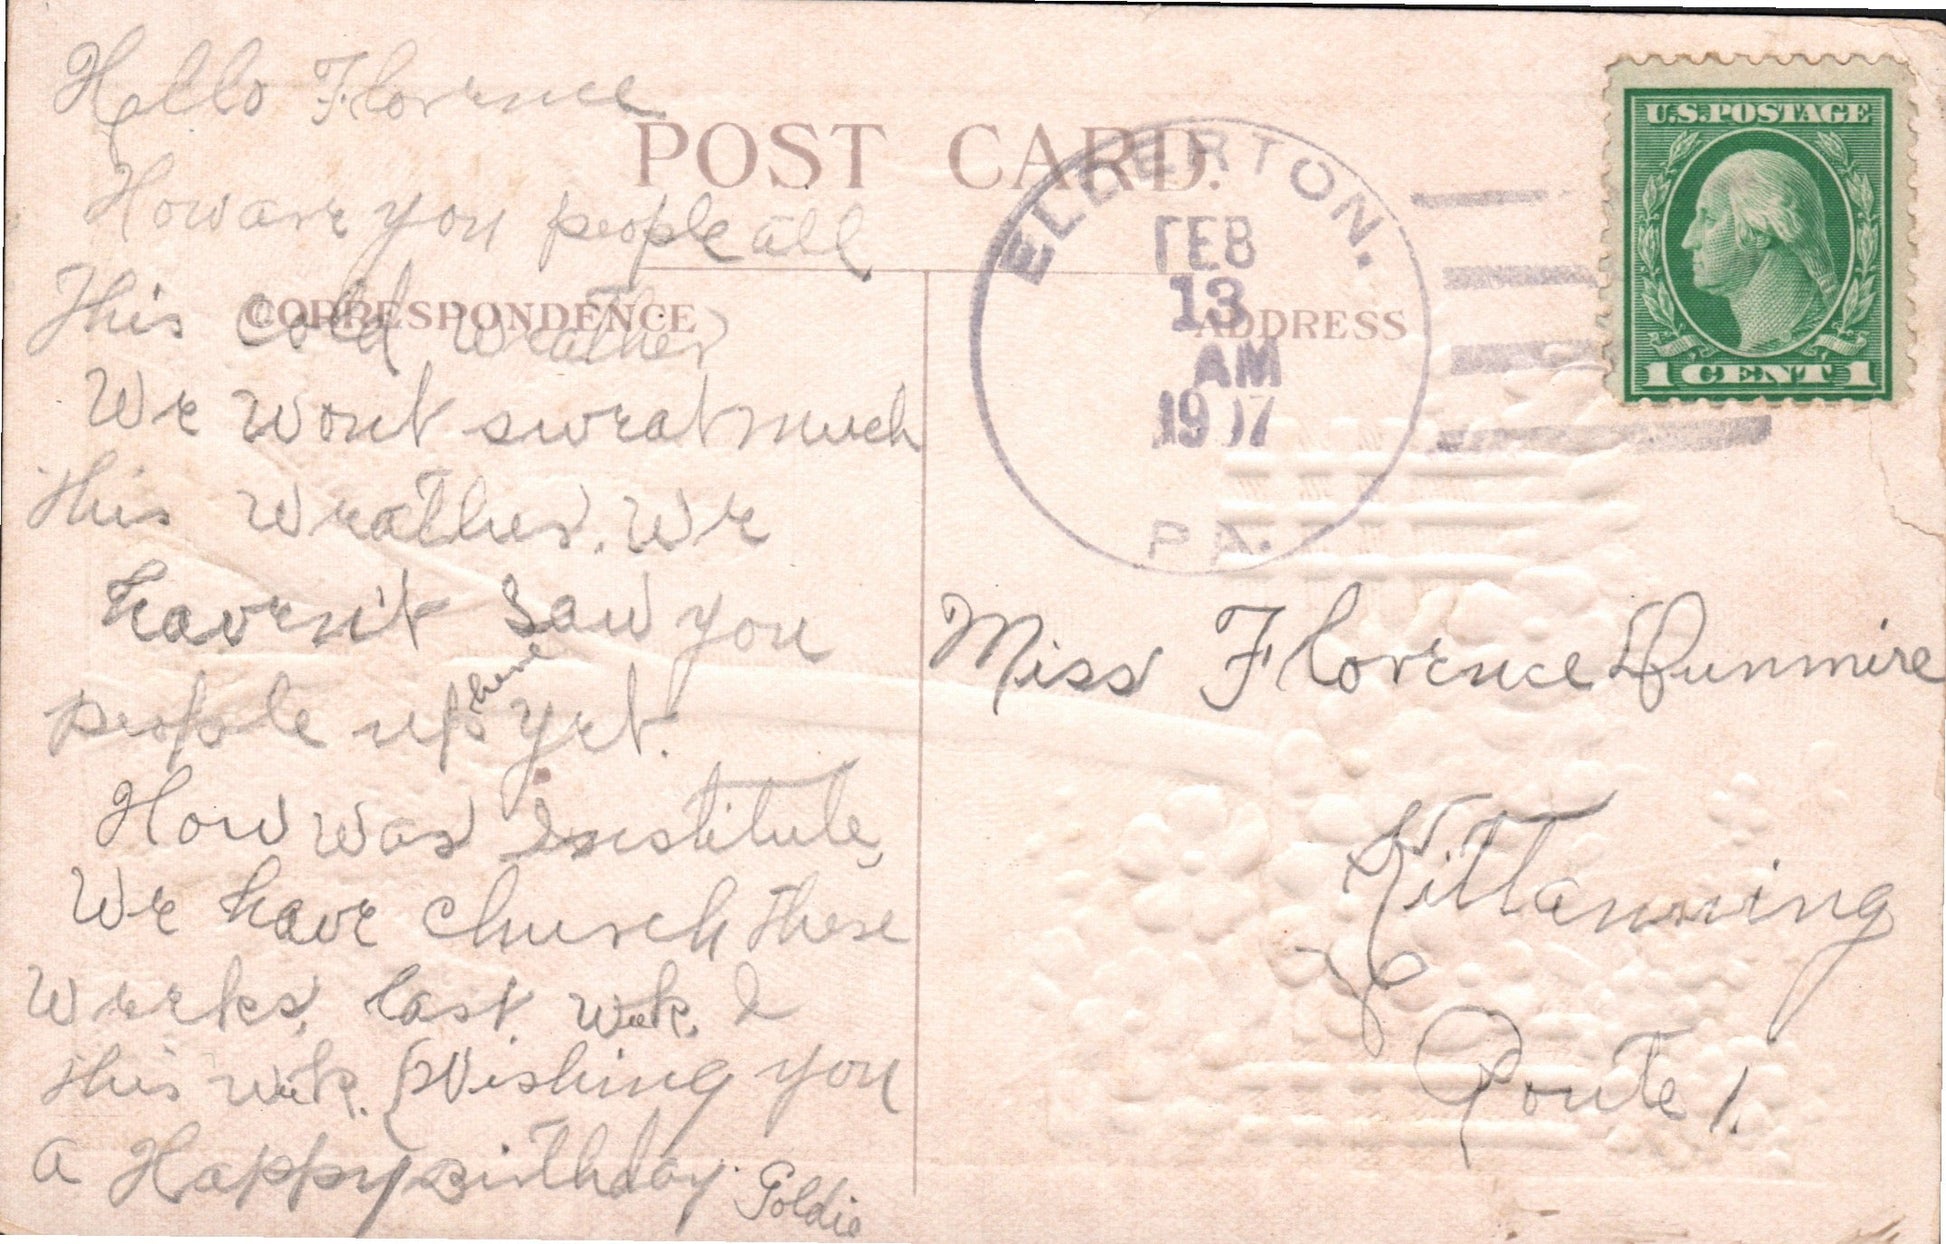 Hello Florence
How are you people all
This cold weather
We wont sweat much
this weather. We
haven't saw you
people up here yet.
How was Institute,
We have church these
weeks, last week, &
this week. Wishing you
a Happy Birthday. Goldie
POST CARD.
CORRESPONDENCE
ADDRESS
ELDERTON.
FEB
13
AM
PA.
U.S. POSTAGE
1 CENT 1
Miss Florence Dunmire
Kittanning
Route 1.